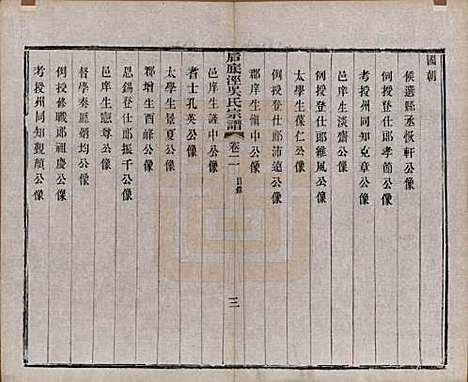 國朝
候選縣丞恢軒公像
例授登仕郎孝節公像
考授州同知克章公像
邑庠生淡齋公像
例授登仕郎維風公像
太學生葆仁公像
例授登仕郎沛遠公像
郡庠生韻中公像
后底涇吳氏宗譜 卷二 目錄 三
邑庠生謙中公像
耆士孔英公像
太學生景夏公像
郡增生酉峰公像
恩錫登仕郎振千公像
邑庠生憲尊公像
督學奏廳炳均公像
例授修職郎祖慶公像
考授州同知觀顏公像